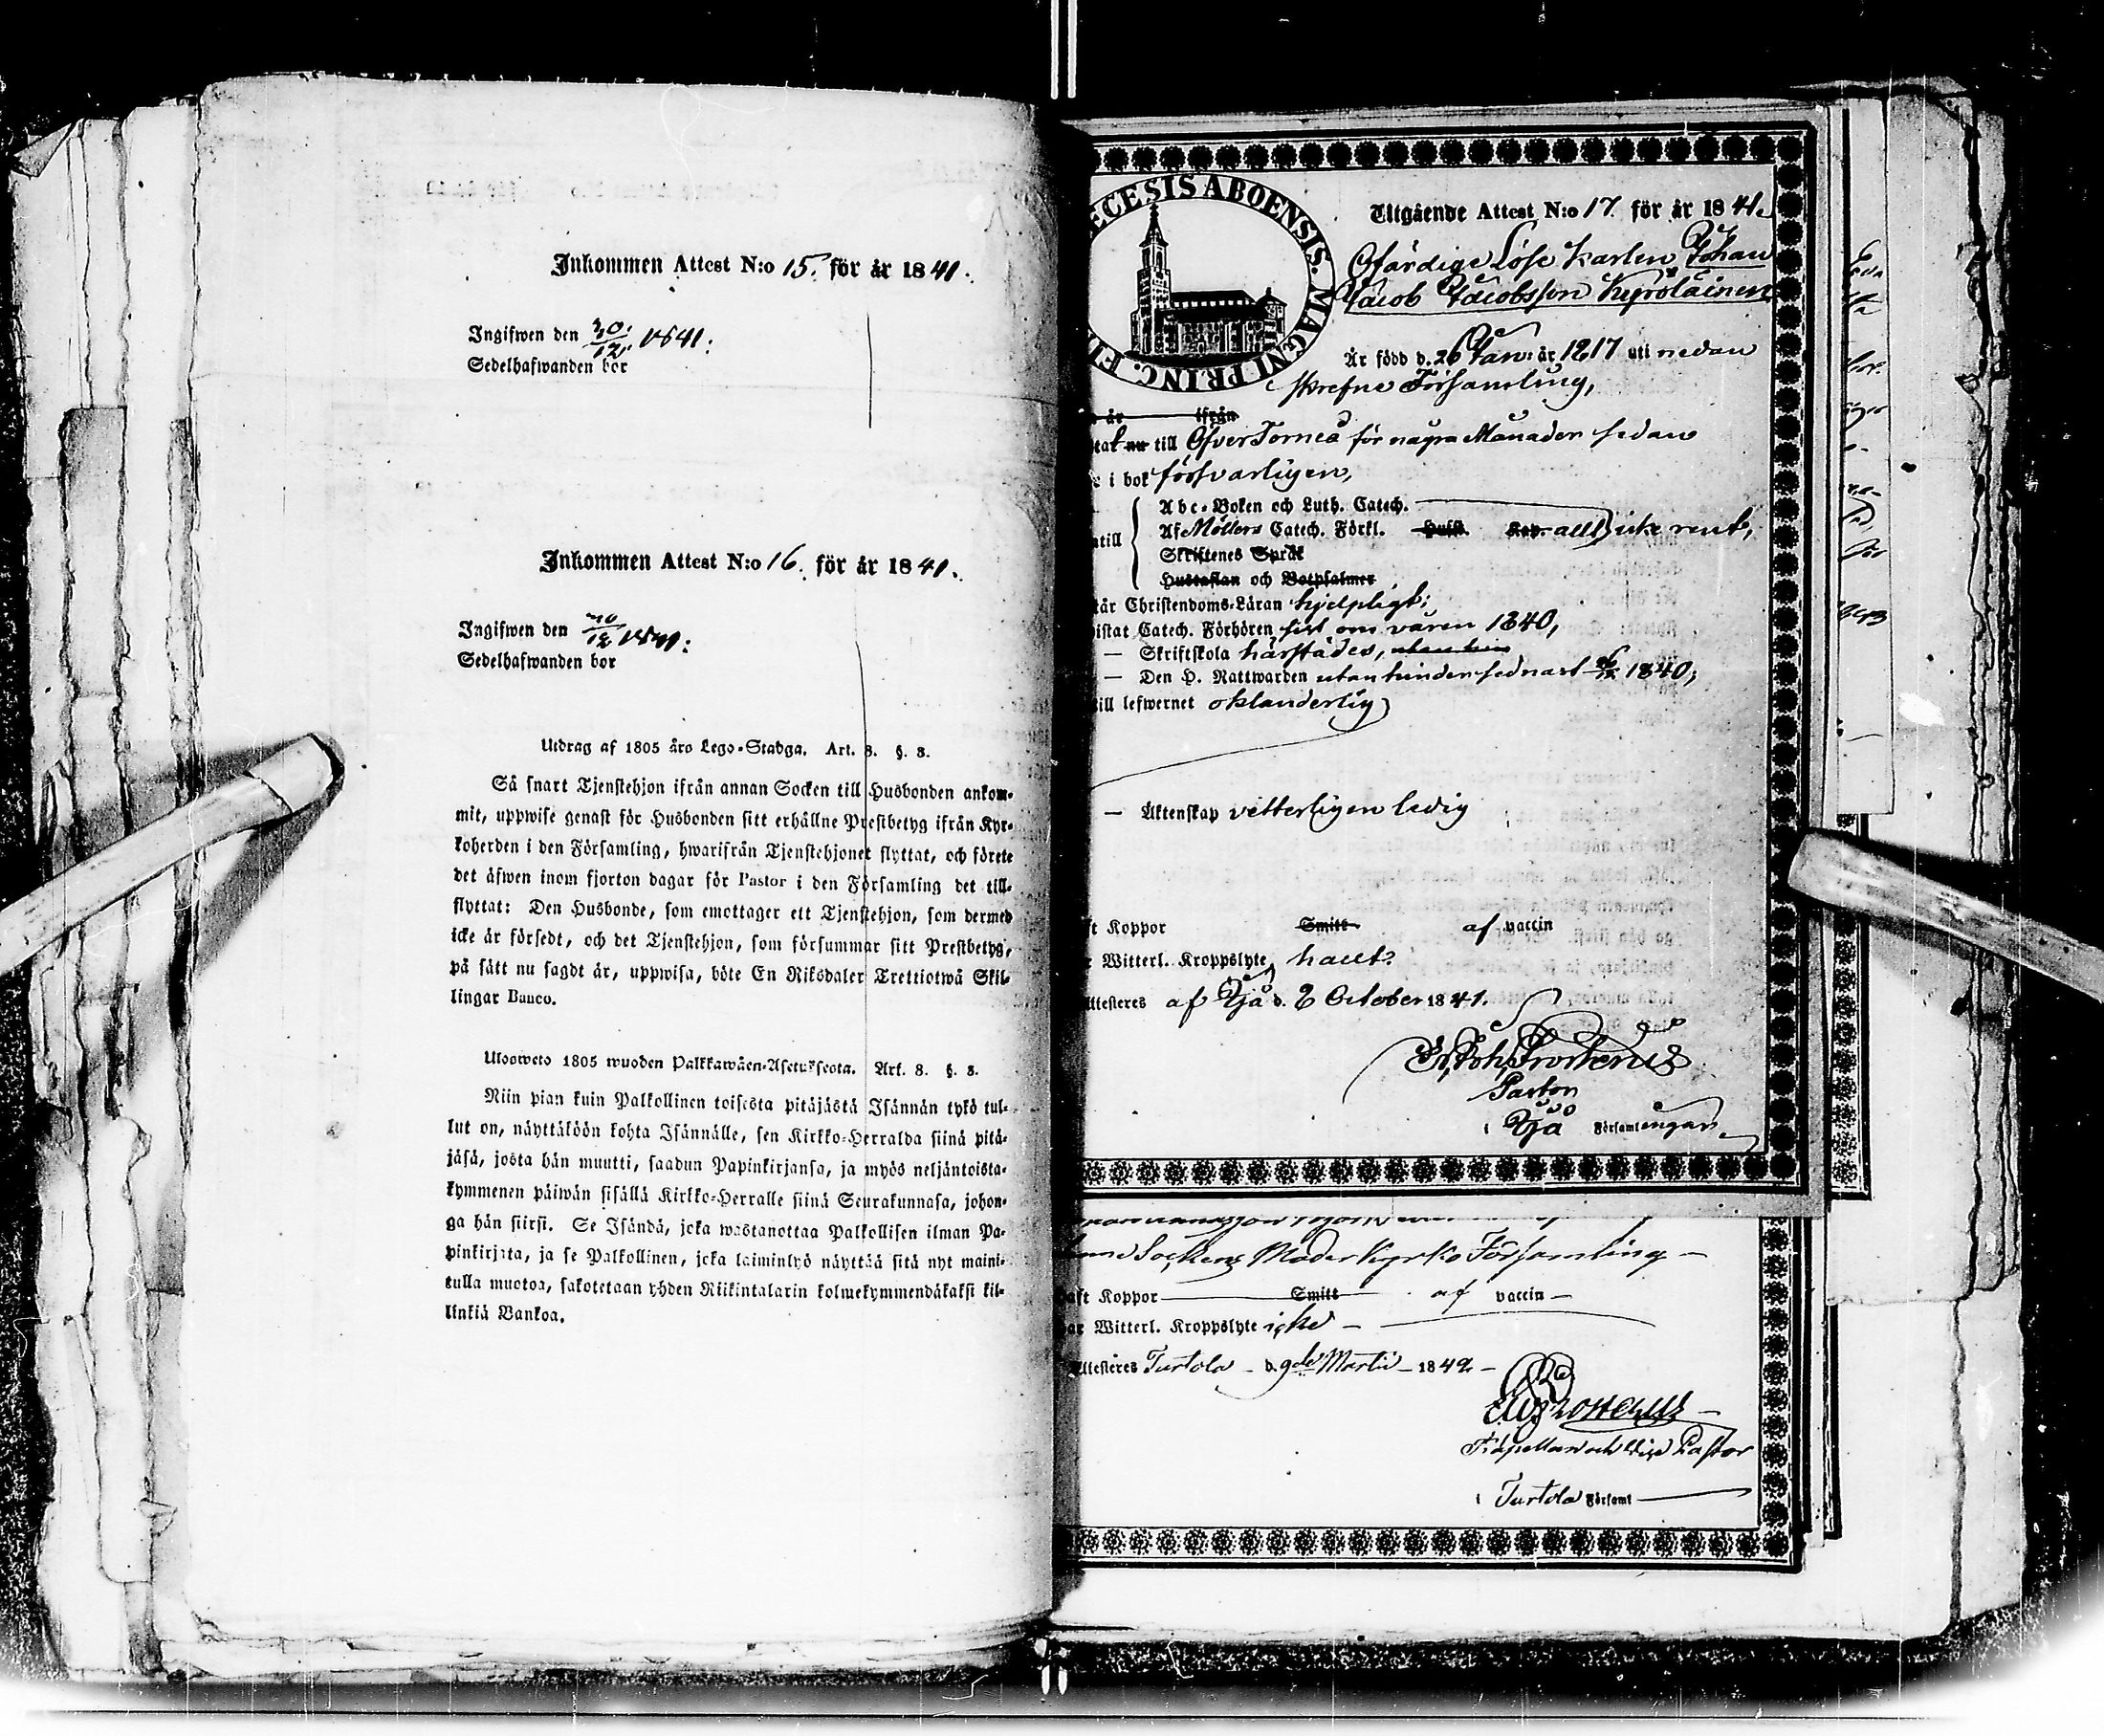 Inkommen Attest N:o 15. för år 1841.
Ingifwen den 30/12 1841.
Sedelhafwanden bor
Inkommen Attest N:o 16. för år 1841.
Ingifwen den 30/12 1841.
Sedelhafwanden bor
Utdrag af 1805 års Lego-Stadga. Art. 8. §. 3.
Så snart Tjenstehjon ifrån annan Socken till Husbonden ankom-
mit, uppwise genast för Husbonden sitt erhållne Prestbetyg ifrån Kyr-
koherden i den Församling, hwarifrån Tjenstehjonet flyttat, och förete
det äfwen inom fjorton dagar för Pastor i den Församling det till-
flyttat: Den Husbonde, som emottager ett Tjenstehjon, som dermed
icke är försedt, och det Tjenstehjon, som försummar sitt Prestbetyg,
på sätt nu sagdt är, uppwisa, böte En Riksdaler Trettiotwå Skil-
lingar Banco.
Ulosweto 1805 wuoden Palkkawäen-Asetuksesta. Art. 8. §. 3.
Niin pian kuin Palkollinen toisesta pitäjästä Isännän tykö tul-
lut on, näyttäköön kohta Isännälle, sen Kirkko-Herralda siinä pitä-
jäsä, josta hän muutti, saadun Papinkirjansa, ja myös neljäntoista-
kymmenen päiwän sisällä Kirkko-Herralle siinä Seurakunnasa, johon-
ga hän siirsi. Se Isändä, joka wastanottaa Palkollisen ilman Pa-
pinkirjata, ja se Palkollinen, joka laiminlyö näyttää sitä nyt maini-
tulla muotoa, sakotetaan yhden Riikintalarin kolmekymmendäkaksi kil-
linkiä Bankoa.
ECESIS ABOENSIS. MAGNI PRINC. FI
Utgående Attest N:o 17. för år 1841.
Ofärdige Löse karlen Johan
Jacob Jacobsson Kyrölainen
Är född d. 26 Jan: år 1817 uti nedan
skrefne Församling,
år ifrån
tat nu till Öfver Torneå för några Månader sedan
i bok försvarligen,
Abc-Boken och Luth. Catech.
Af Möllers Catech. Förkl. Hust. Kor. allt icke rent,
ntill
Skriftenes Språk
Hustaflan och Botpsalmer
tår Christendoms-Läran hjelpligt;
istat Catech. Förhören sist om våren 1840,
— Skriftskola härstädes, utan hin
— Den H. Nattwarden utan hinder sednast 1840;
till lefwernet oklanderlig
— Äktenskap vetterligen ledig
ft Koppor Smitt af vaccin
r Witterl. Kroppslyte halt.
Attesteres af d. 2 October 1841.
Joh. Frosterus
Pastor
i Församlingan
Sockens Moderkyrko Församling —
aft Koppor Smitt af vaccin —
ar Witterl. Kroppslyte icke —
Attesteres Turtola — d. 9de Martii — 1842 —
Frosterus —
Kapellan och Vice Pastor
i Turtola Församl